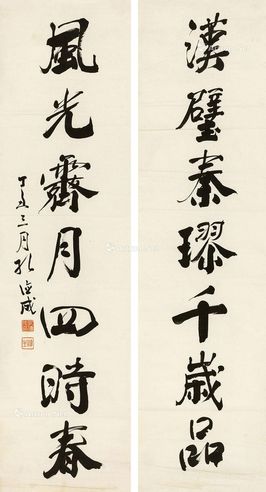 漢璧秦璆千歲品
風光霽月四時春
丁亥三月孔德成